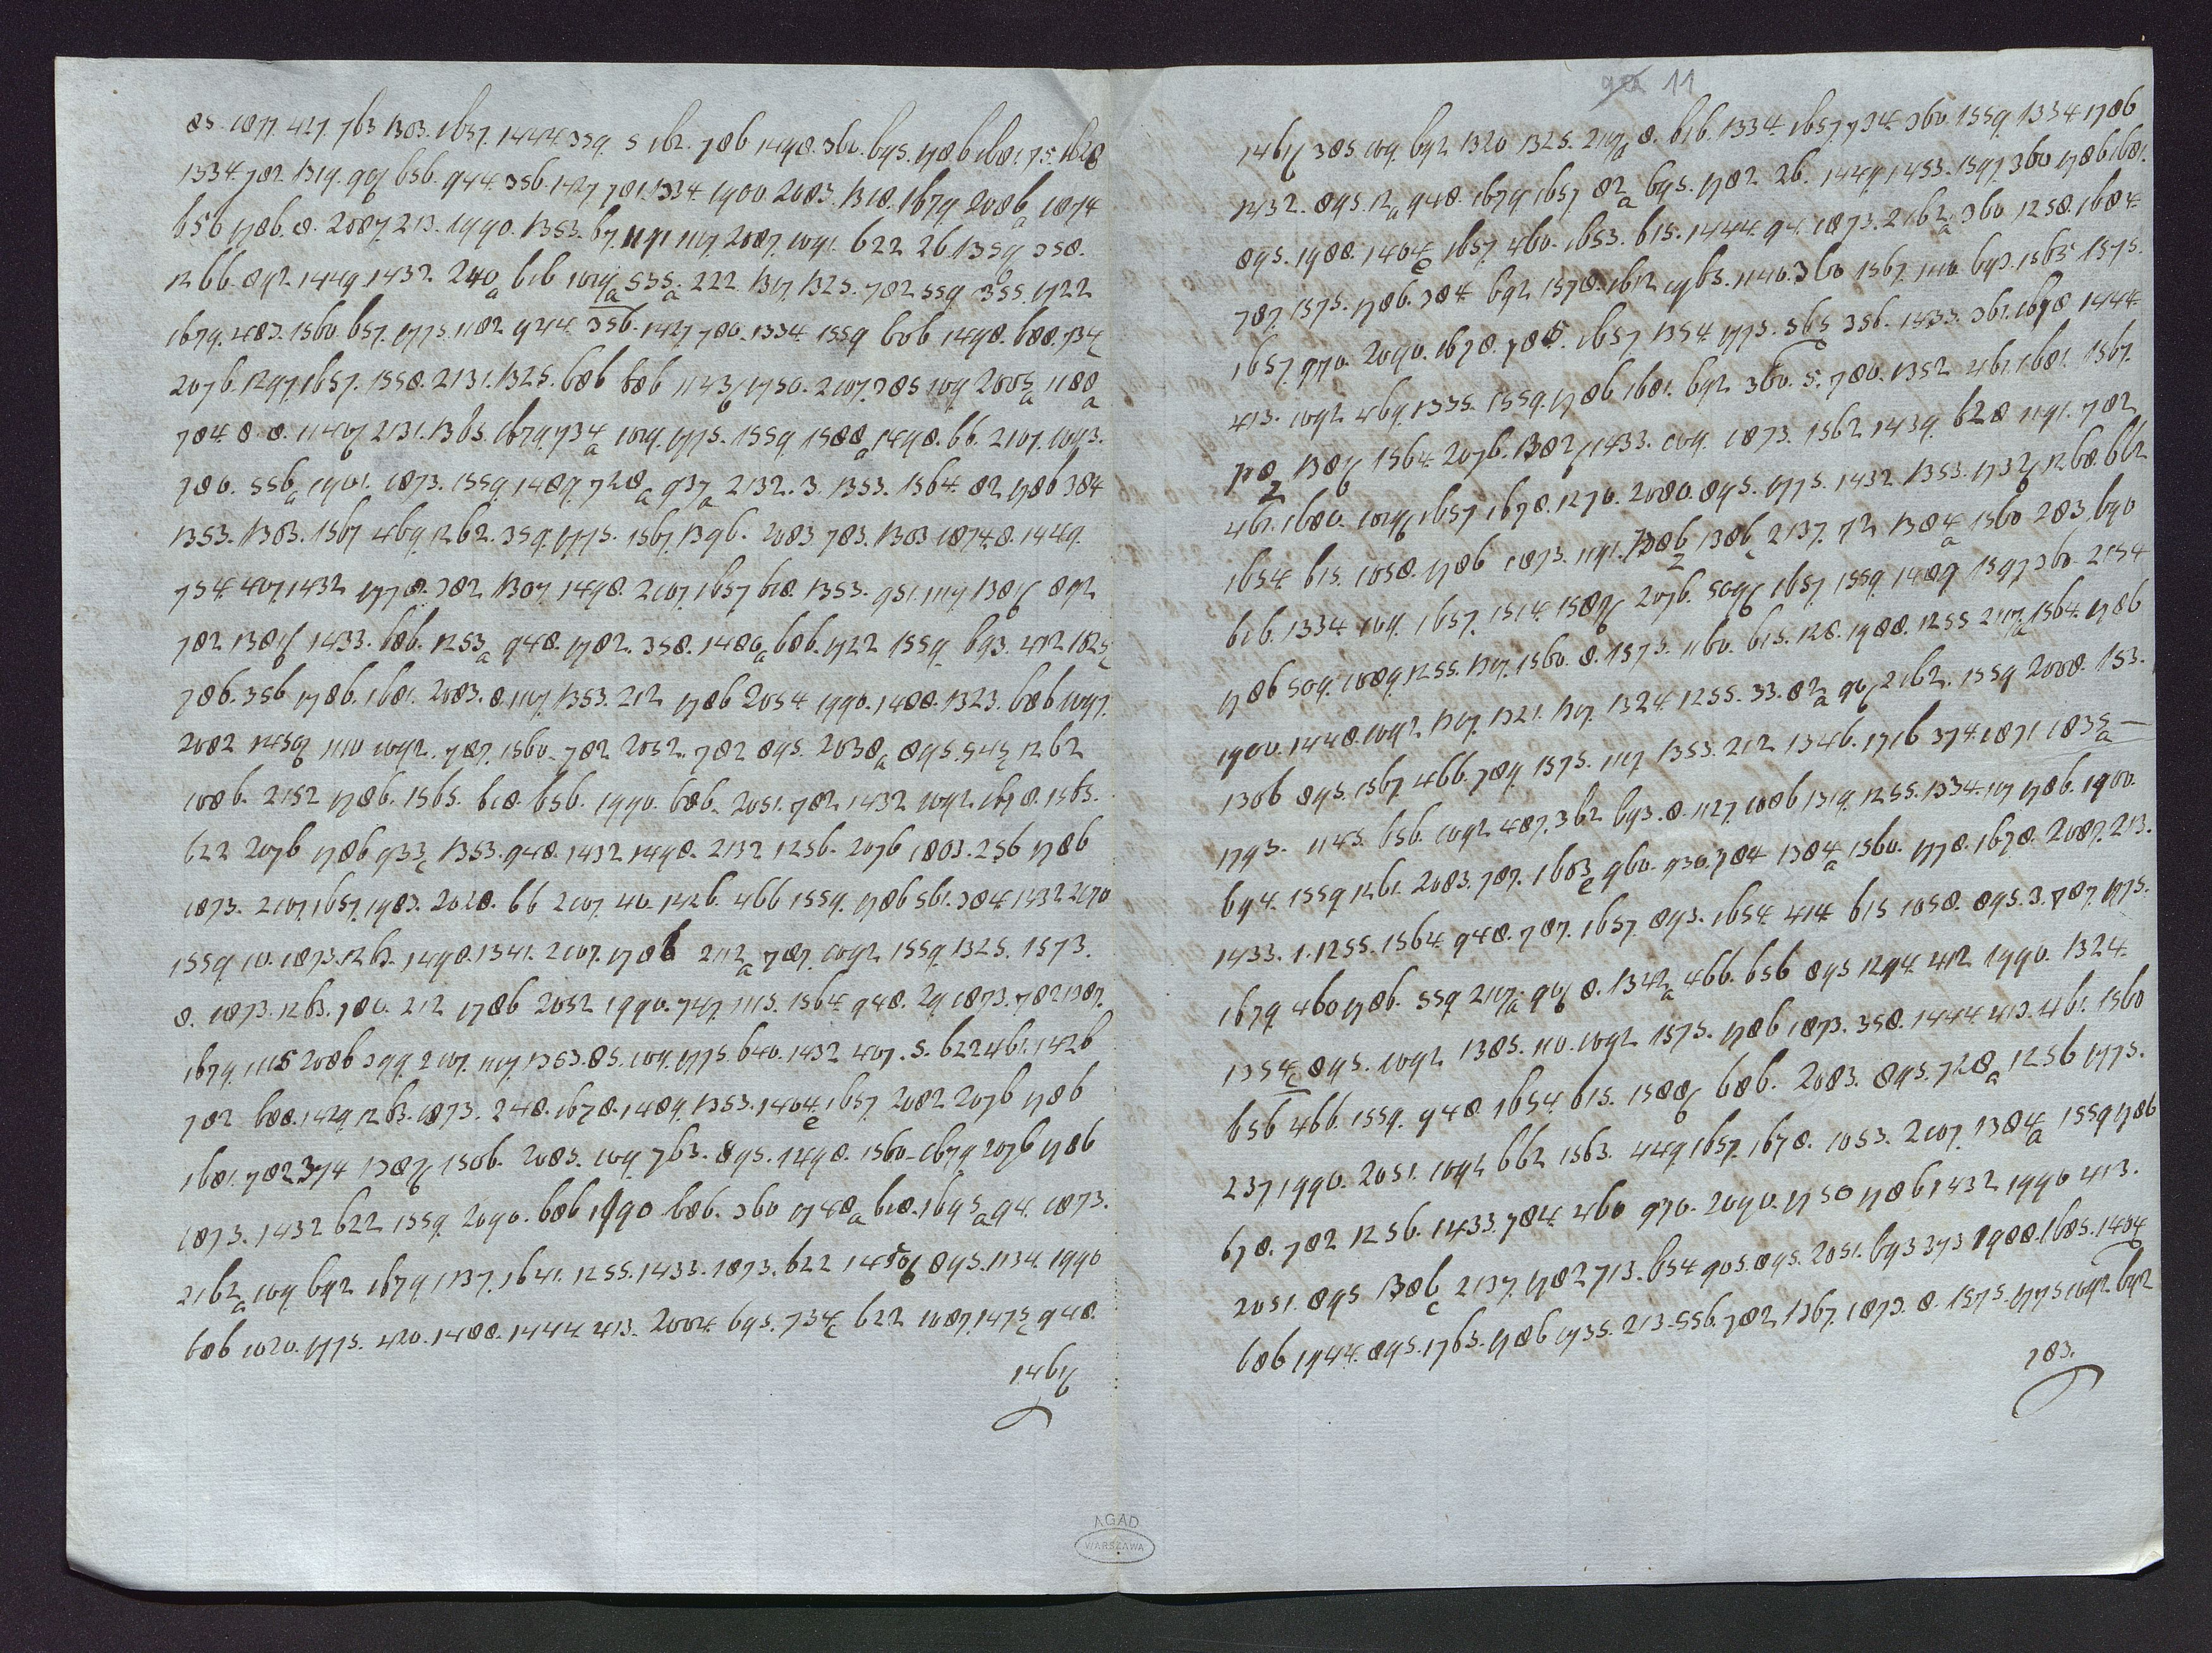 85. 1877. 427. 763 1303. 1657. 1444. 359. 5 162. 786 1498. 360. 695. 1786 1681. 75. 1628
1334. 782 1319. 656. 944. 356. 1427 781. 1334. 1900. 2083. 1318. 1679 2086a 1874
656 1786. 8. 2087. 213. 1990. 1353. 67. 1191 1117. 2087. 1091. 622 26. 1359 358.
1266. 892 1449. 1432. 240a 616 1029a 535a. 222. 1317. 1325. 782 559 355. 1722
1679. 483. 1560. 657. 1775. 1182 924. 356. 1427 780. 1334. 1559 606 1498. 688. 734c
2076. 1297. 1657. 1558. 2131. 1325. 686 686 1143b 1750. 2107. 385 109. 2005a 1188a
784 8 8. 1140b 2131. 1365. 1679. 734a 1029. 1775. 1559 1588a 1498. 66. 2107. 1093.
780. 556a 1901. 1873. 1559. 1489. 728a 937a 2132. 3. 1353. 1564. 82 1786 384
1353. 1303. 1567 469. 1262. 359. 1775. 1567. 1396. 2083 783. 1303 1874. 8. 1449.
754. 407. 1432 1778. 382 1307. 1498. 2107. 1657 618. 1353. 951. 1117 1381b 892
782 1381b 1433. 686. 1253a 948. 1782. 358. 1480a 686. 1722 1559 693. 412 1825c
786. 356 1786. 1681. 2083. 8. 1117. 1353. 212 1786 2054 1990. 1488. 1323. 686 1097.
2082 1459b 1110 1092. 787. 1560. 782 2052. 782 895. 2038a 895. 545c 1262
1086. 2152 1786. 1565. 618. 656. 1990. 686. 2051. 782 1432 1092 1678. 1565.
622 2076 1786 933c 1353. 948. 1432 1498. 2132 1256. 2076 1803. 256 1786
1873. 2107 1657. 1983. 2028. 66 2107. 40. 1426. 466 1559. 1786 561. 384. 1432 2070
1559 10. 1873. 1263. 1498. 1341. 2107. 1786 2112a 787. 1092 1559. 1325. 1573.
8. 1873. 1263. 780. 212 1786 2052 1990. 747. 1115. 1564. 948. 29 1873. 782 1387.
1679. 1115 2086 399. 2107. 1117. 1353. 85. 109. 1775. 640. 1432 407. 5. 622 461. 1426
782 688. 1429. 1263. 1873. 248. 1678. 1489. 1353. 1404e 1657 2082 2076 1786
1681. 782. 374 1387b 1506. 2085. 109 763. 895. 1498. 1560. 1679 2076 1786
1873. 1432 622 1559. 2090. 686 1990 686. 360 1748a 618. 1695a 94. 1873.
2162a 109. 692 1679 1737. 1641. 1255. 1433. 1873. 622 1450b 895. 1134. 1990
686 1020. 1775. 420. 1488. 1444. 413. 2004. 695. 734c 622 1087. 1475c 948.
1461b
11
1461b 385. 109. 692 1320 1325. 2117a 8. 616. 1334. 1657. 734. 360. 1559 1334 1786
1432. 895. 12a 948. 1679 1657 82a 695. 1782 26. 1449. 1453. 1597. 360 1786 1681.
895. 1988. 1404e 1657. 460. 1653. 615. 1444. 94. 1873. 2162a 360 1258. 1684.
787. 1575. 1786. 384 692 1578. 1612 1763. 1140. 360 1567. 1110 693. 1565 1575.
1657. 970. 2090. 1678. 785. 1657 1354. 1775. 565c 356. 1433. 361. 1698 1444.
413. 1092 469. 1335. 1559. 1786 1681. 692 360. 5. 780. 1352 461. 1681. 1567.
1381b 1564. 2076. 1382b 1433. 109. 1873. 1562 1439. 628 1191. 782
461. 1680. 1029b 1657 1678. 1270. 2080. 895. 1775. 1432 1353. 1732b 1268. 662
1654 615. 1058. 1786 1873. 1191. 1386c 2137. 72 1384a 1560 283. 690
616. 1334. 109. 1657. 1514. 1587b 2076. 509b 1657. 1559. 1489 1397 360. 2154
1786 509. 1089. 1255. 1317. 1560. 8. 1573. 1160. 615. 128. 1988. 1255 2117a 1564. 1786
1900. 1448. 1092 1317. 1321. 1317. 1324. 1255. 33. 82a 2162. 1559 2008. 153.
1306 895. 1567 466. 789. 1575. 1117 1353. 212 1346. 1716 374. 1871 1835a —
1793. 1143. 656. 1092 487. 362 693. 8. 1127. 1086 1319. 1255. 1334. 117 1786. 1900.
694. 1559 1261. 2083. 787. 1603e 960. 930. 784 1384a 1560. 1778. 1678. 2087. 213.
1433. 1. 1255. 1564. 948. 787. 1657. 893. 1654 414 615 1058. 895. 3. 787. 1775.
1679. 460 1786. 559 2117a 8. 1342a 466. 656 895 1294. 412 1990. 1324.
1354c 895. 1092 1385. 110. 1092 1575. 1786 1873. 358. 1444 413. 461. 1560
656 466. 1559. 948. 1654. 615. 1588b 686. 2083. 895. 728a 1256 1775.
237 1990. 2051. 1092 662 1563. 449. 1657. 1678. 1053. 2107. 1384a 1559 1786
678. 782 1256. 1433. 784. 460 970. 2090. 1750 1786 1432 1990 413.
2051. 895 1386c 2137. 1782 713. 654 905. 895. 2051. 693 373 1988. 1685. 1404
686 1944. 895. 1763. 1786 1735. 213. 556. 782 1367. 1873. 8. 1575. 1775 1092. 692
783.
AGAD
WARSZAWA